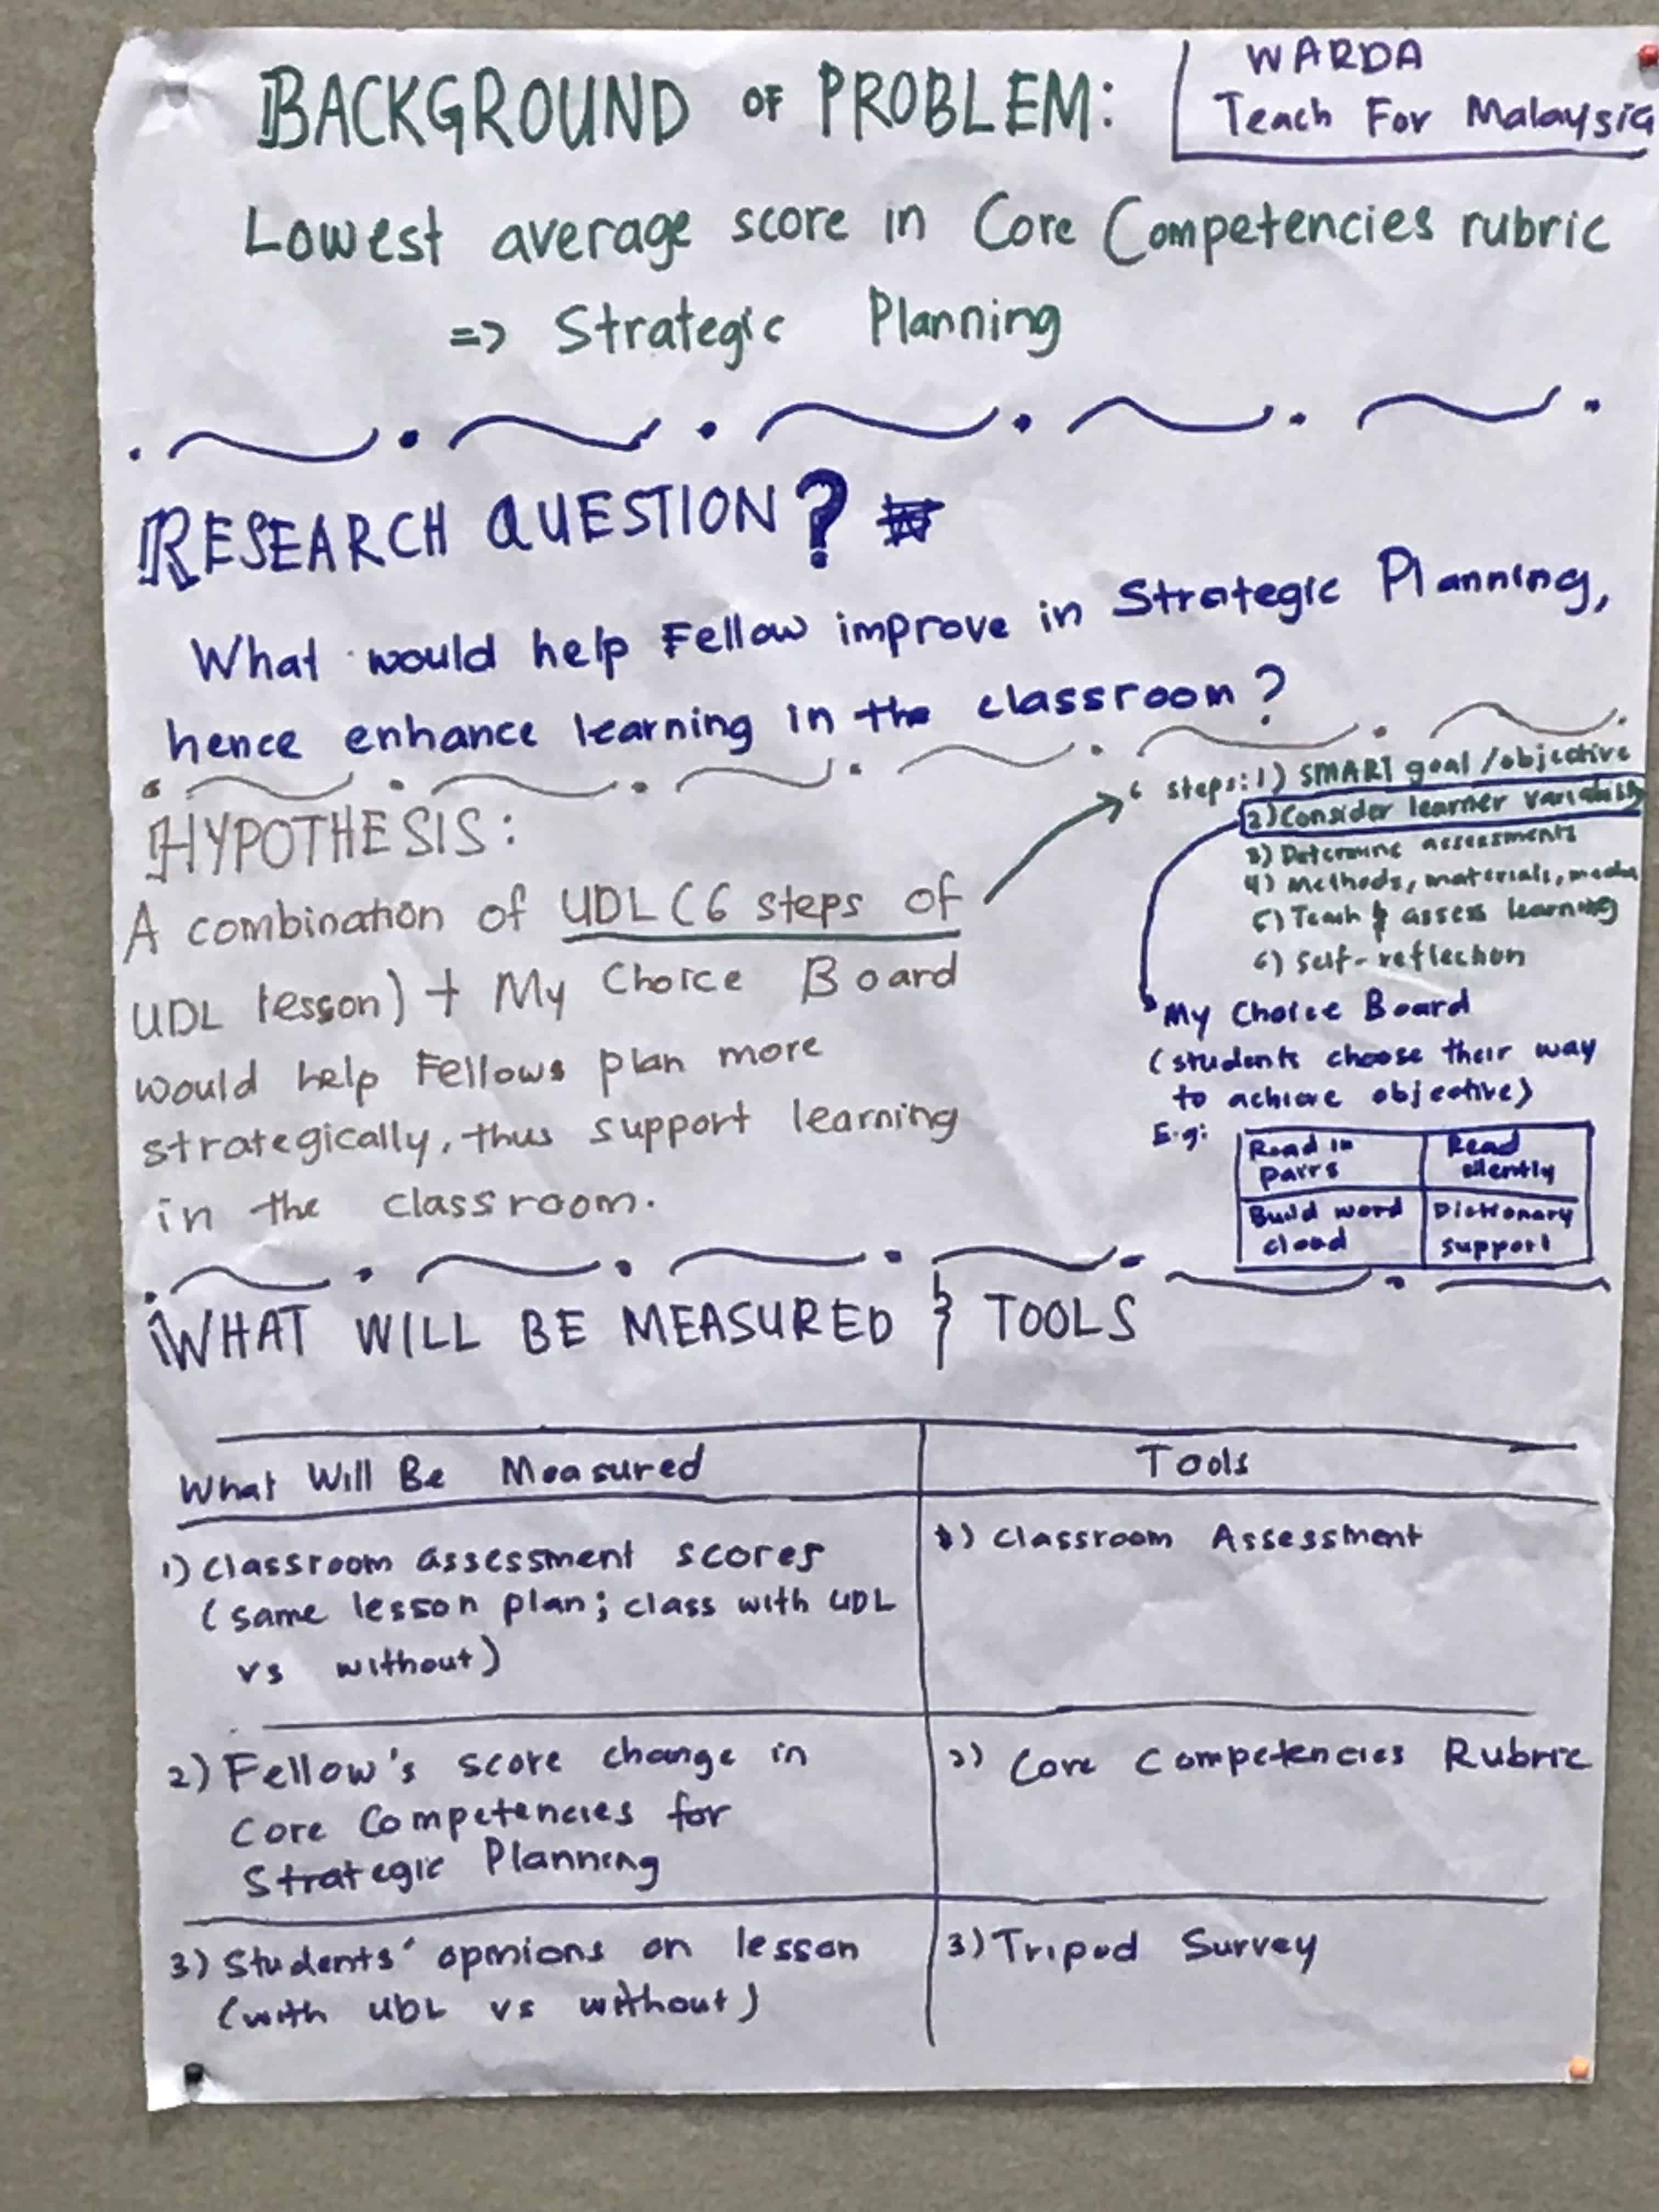 BACKGROUND OF PROBLEM:
WARDA
Teach For Malaysia
Lowest average score in Core Competencies rubric
=> Strategic Planning
RESEARCH QUESTION?
What would help Fellow improve in Strategic Planning,
hence enhance learning in the classroom?
HYPOTHESIS:
A combination of UDL (6 steps of
UDL lesson) + My Choice Board
would help Fellows plan more
strategically, thus support learning
in the classroom.
6 steps: 1) SMART goal /objective
2) Consider learner variability
3) Determine assessments
4) Methods, materials, media
5) Teach & assess learning
6) Self-reflection
My Choice Board
(students choose their way
to achieve objective)
E.g:
Read in pairs
Read silently
Build word cloud
Dictionary support
WHAT WILL BE MEASURED & TOOLS
What Will Be Measured
Tools
1) Classroom assessment scores
(same lesson plan; class with UDL
vs without)
1) Classroom Assessment
2) Fellow's score change in
Core Competencies for
Strategic Planning
2) Core Competencies Rubric
3) Students' opinions on lesson
(with UDL vs without)
3) Tripod Survey